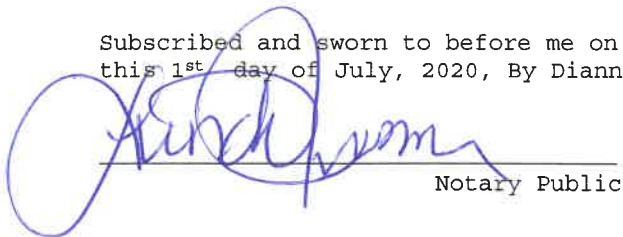 Subscribed and sworn to before me on
this 1st day of July, 2020, By Diann
Notary Public